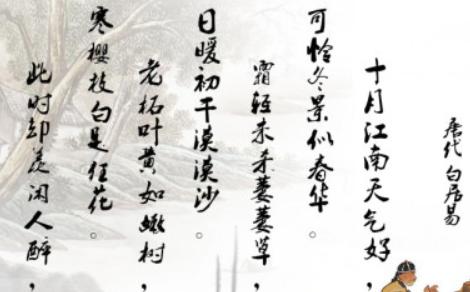 唐代 白居易
十月江南天气好，
可怜冬景似春华。
霜轻未杀萋萋草，
日暖初干漠漠沙。
老柘叶黄如嫩树，
寒樱枝白是狂花。
此时却羡闲人醉，